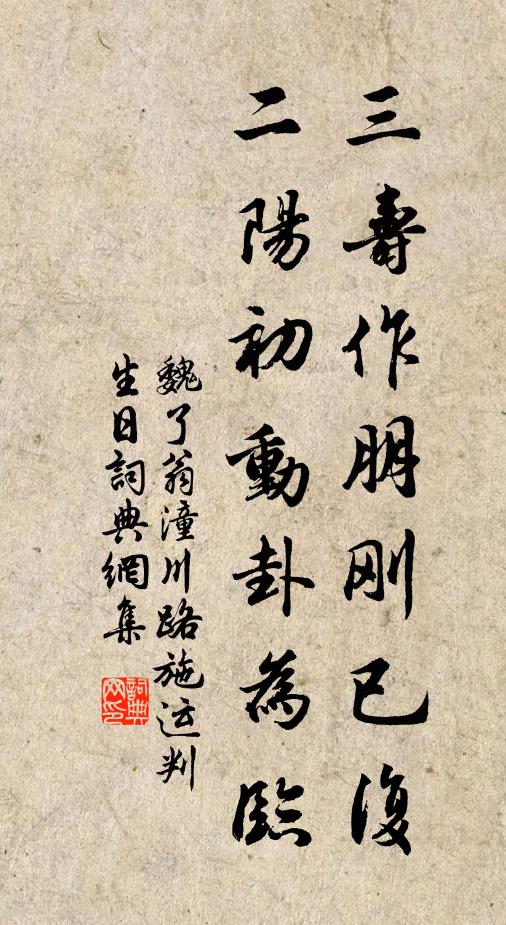 三壽作朋刚已復
二陽初動卦為臨
魏了翁潼川路施运判
生日詞典網集
詞典
网印